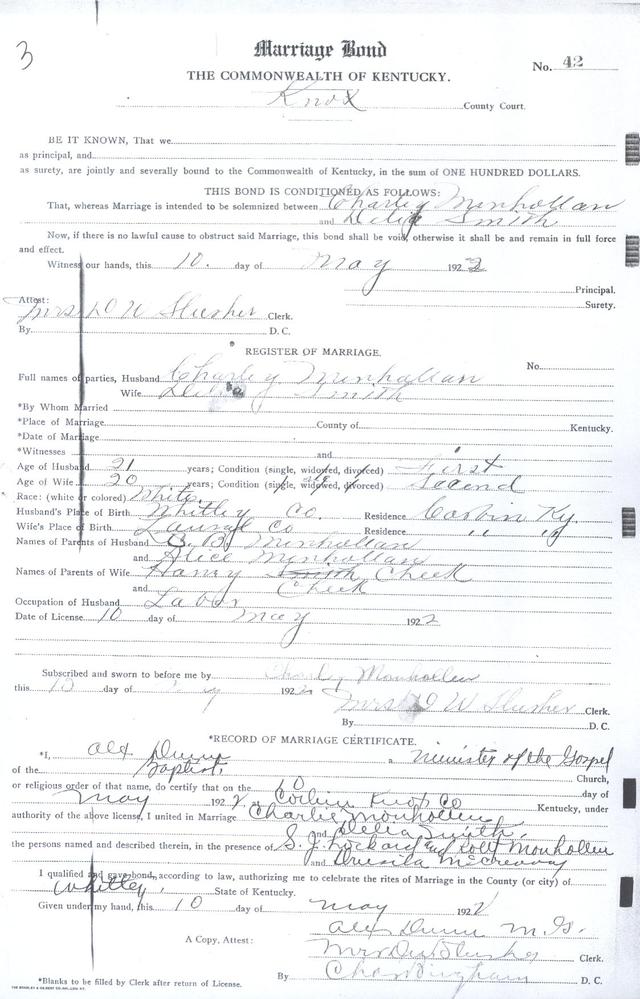 3
Marriage Bond
No. 42
THE COMMONWEALTH OF KENTUCKY.
Knox County Court.
BE IT KNOWN, That we
as principal, and
as surety, are jointly and severally bound to the Commonwealth of Kentucky, in the sum of ONE HUNDRED DOLLARS.
THIS BOND IS CONDITIONED AS FOLLOWS:
That, whereas Marriage is intended to be solemnized between Charley Minhollan
and Delia Smith
Now, if there is no lawful cause to obstruct said Marriage, this bond shall be void, otherwise it shall be and remain in full force
and effect.
Witness our hands, this 10. day of May 1922
Principal.
Surety.
Attest:
Mrs D W Slusher Clerk.
By D. C.
REGISTER OF MARRIAGE.
No.
Full names of parties, Husband Charley Minhollan
Wife Smith
*By Whom Married
*Place of Marriage County of Kentucky.
*Date of Marriage
*Witnesses and
Age of Husband 21 years; Condition (single, widowed, divorced) First
Age of Wife 20 years; Condition (single, widowed, divorced) Second
Race: (white or colored) White.
Husband's Place of Birth Whitley Co. Residence Corbin Ky.
Wife's Place of Birth Laurel Co Residence " "
Names of Parents of Husband B. Minhollan
and Alice Minhollan
Names of Parents of Wife Smith Cheek
and Cheek
Occupation of Husband Labor
Date of License 10 day of May 1922
Subscribed and sworn to before me by Charly Monhollen
this 10 day of May 1922
Mrs D W Slusher Clerk.
By D. C.
*RECORD OF MARRIAGE CERTIFICATE.
*I, Alex Dunn a Minister of the Gospel
of the Baptist Church,
or religious order of that name, do certify that on the 10 day of
May 1922 at Corbin Knox Co Kentucky, under
authority of the above license, I united in Marriage Charlie Monhollen
and Delia Smith.
the persons named and described therein, in the presence of S. J. Lockard and Monhollen
and Drusila McCreavy
I qualified and gave bond, according to law, authorizing me to celebrate the rites of Marriage in the County (or city) of
Whitley, State of Kentucky.
Given under my hand, this 10 day of May 1922
Alex Dunn M. G.
A Copy, Attest: Mrs D W Slusher Clerk.
By Chas Bingham D. C.
*Blanks to be filled by Clerk after return of License.